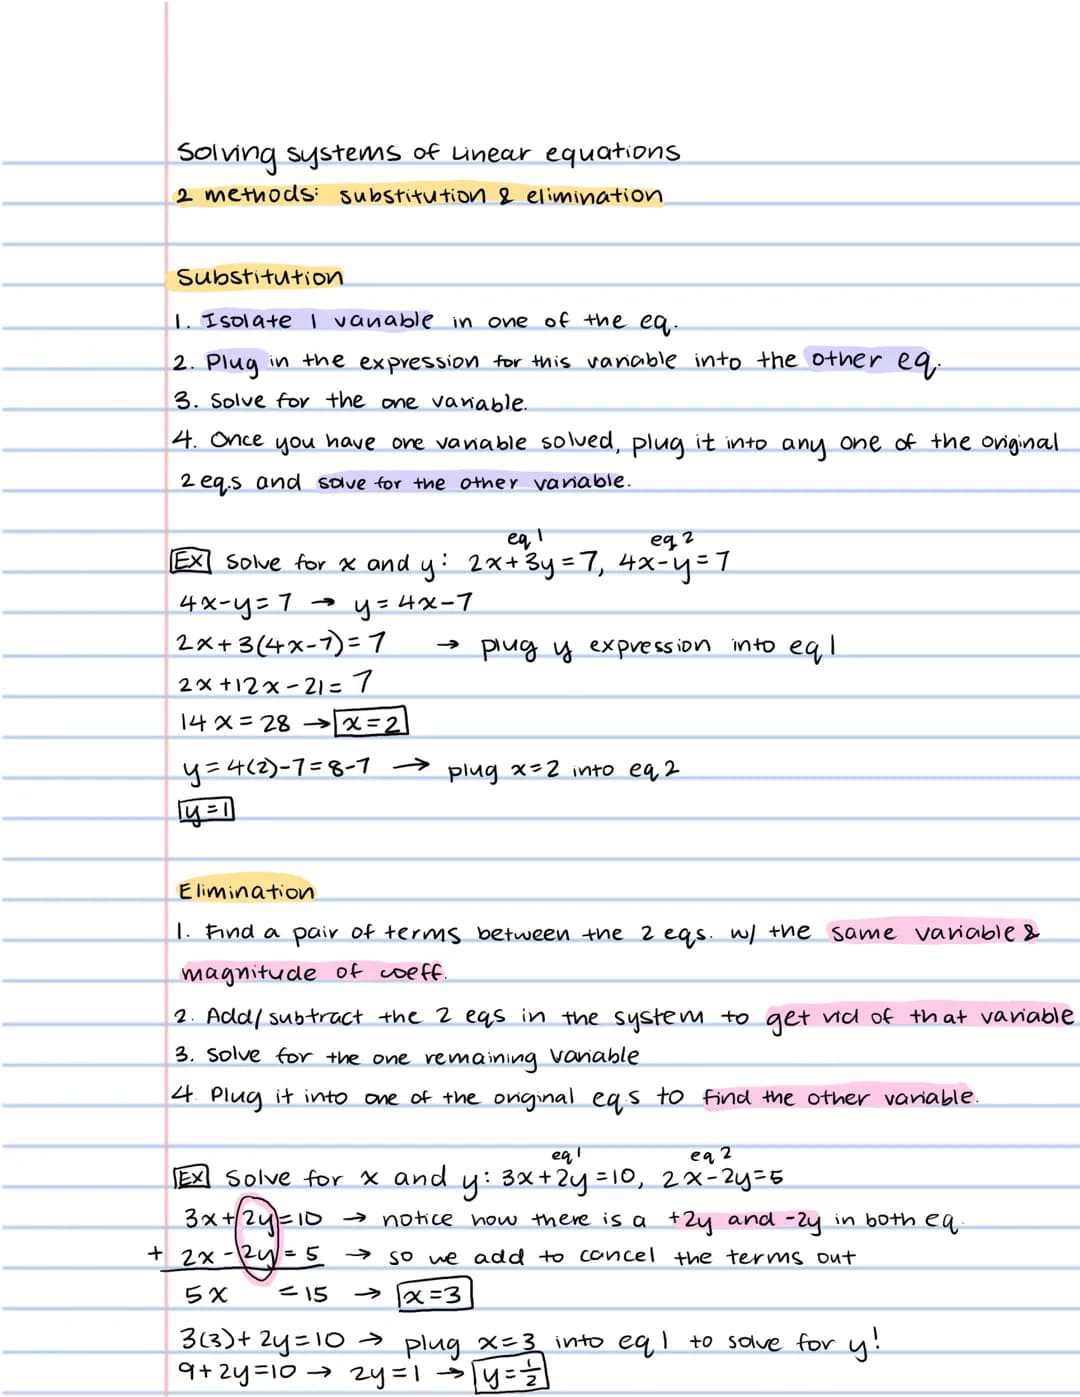 Solving systems of Linear equations
2 methods: substitution & elimination
Substitution
1. Isolate 1 variable in one of the eq.
2. Plug in the expression for this variable into the other eq.
3. Solve for the one variable.
4. Once you have one variable solved, plug it into any one of the original
2 eq.s and solve for the other variable.
eq 1 eq 2
EX Solve for x and y: 2x+3y=7, 4x-y=7
4x-y=7 → y=4x-7
2x+3(4x-7)=7 → plug y expression into eq 1
2x+12x-21=7
14x=28 → x=2
y=4(2)-7=8-7 → plug x=2 into eq 2
y=1
Elimination
1. Find a pair of terms between the 2 eqs. w/ the same variable &
magnitude of coeff.
2. Add/subtract the 2 eqs in the system to get rid of that variable
3. Solve for the one remaining variable
4. Plug it into one of the original eq.s to find the other variable.
eq 1 eq 2
EX Solve for x and y: 3x+2y=10, 2x-2y=5
3x+2y=10 → notice how there is a +2y and -2y in both eq.
+ 2x-2y=5 → so we add to cancel the terms out
5x =15 → x=3
3(3)+2y=10 → plug x=3 into eq 1 to solve for y!
9+2y=10 → 2y=1 → y=1/2